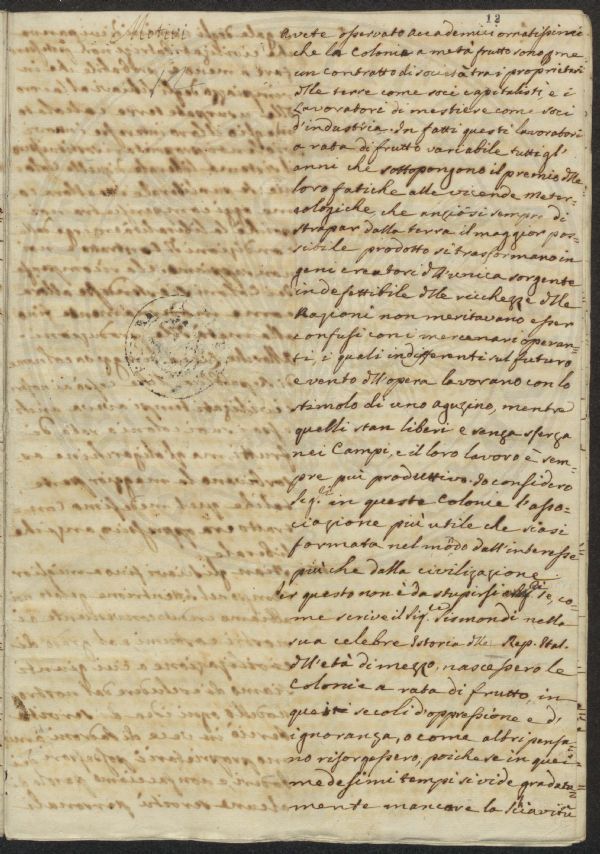 12
Motivi
Avete osservato Accademici ornatissimi
che la Colonie a metà frutto sono pme
un contratto di società tra i proprietarj
dlle terre come socj capitalisti, e i
Lavoratori di mestiere come socj
d'industria. In fatti questi lavoratori
a rata di frutto variabile tutti gl'
anni che sottopongono il premio dlle
loro fatiche alle vicende meteo-
rologiche, che anziosi sempre di
strapar dalla terra il maggior pos-
sibile prodotto si trasformano in
geni creatori dll'unica sorgente
indefettibile dlle ricchezze dlle
Nazioni non meritavano esser
confusi con i mercenari operan-
ti, i quali indifferenti sul futuro
evento dll'opera lavorano con lo
stimolo di uno aguzino, mentre
quelli stan liberi e senza sferza
nei Campi, e il loro lavoro è sem-
pre più produttivo. Io considero
Sig.ri in queste Colonie l'asso-
ciazione più utile che siasi
formata nel mondo dall'interesse
più che dalla civilizazione
Per questo non è da stupirsi se, co-
me scrive il Sig.r Sismondi nella
sua celebre Istoria dlle Rep. Ital.
dll'età di mezzo, nascessero le
Colonie a rata di frutto, in
questi secoli d'oppressione e d'
ignoranza, o come altri pensa-
no risorgessero, poichè se in quei
medesimi tempi si vide gradata-
mente mancare la schiavitù